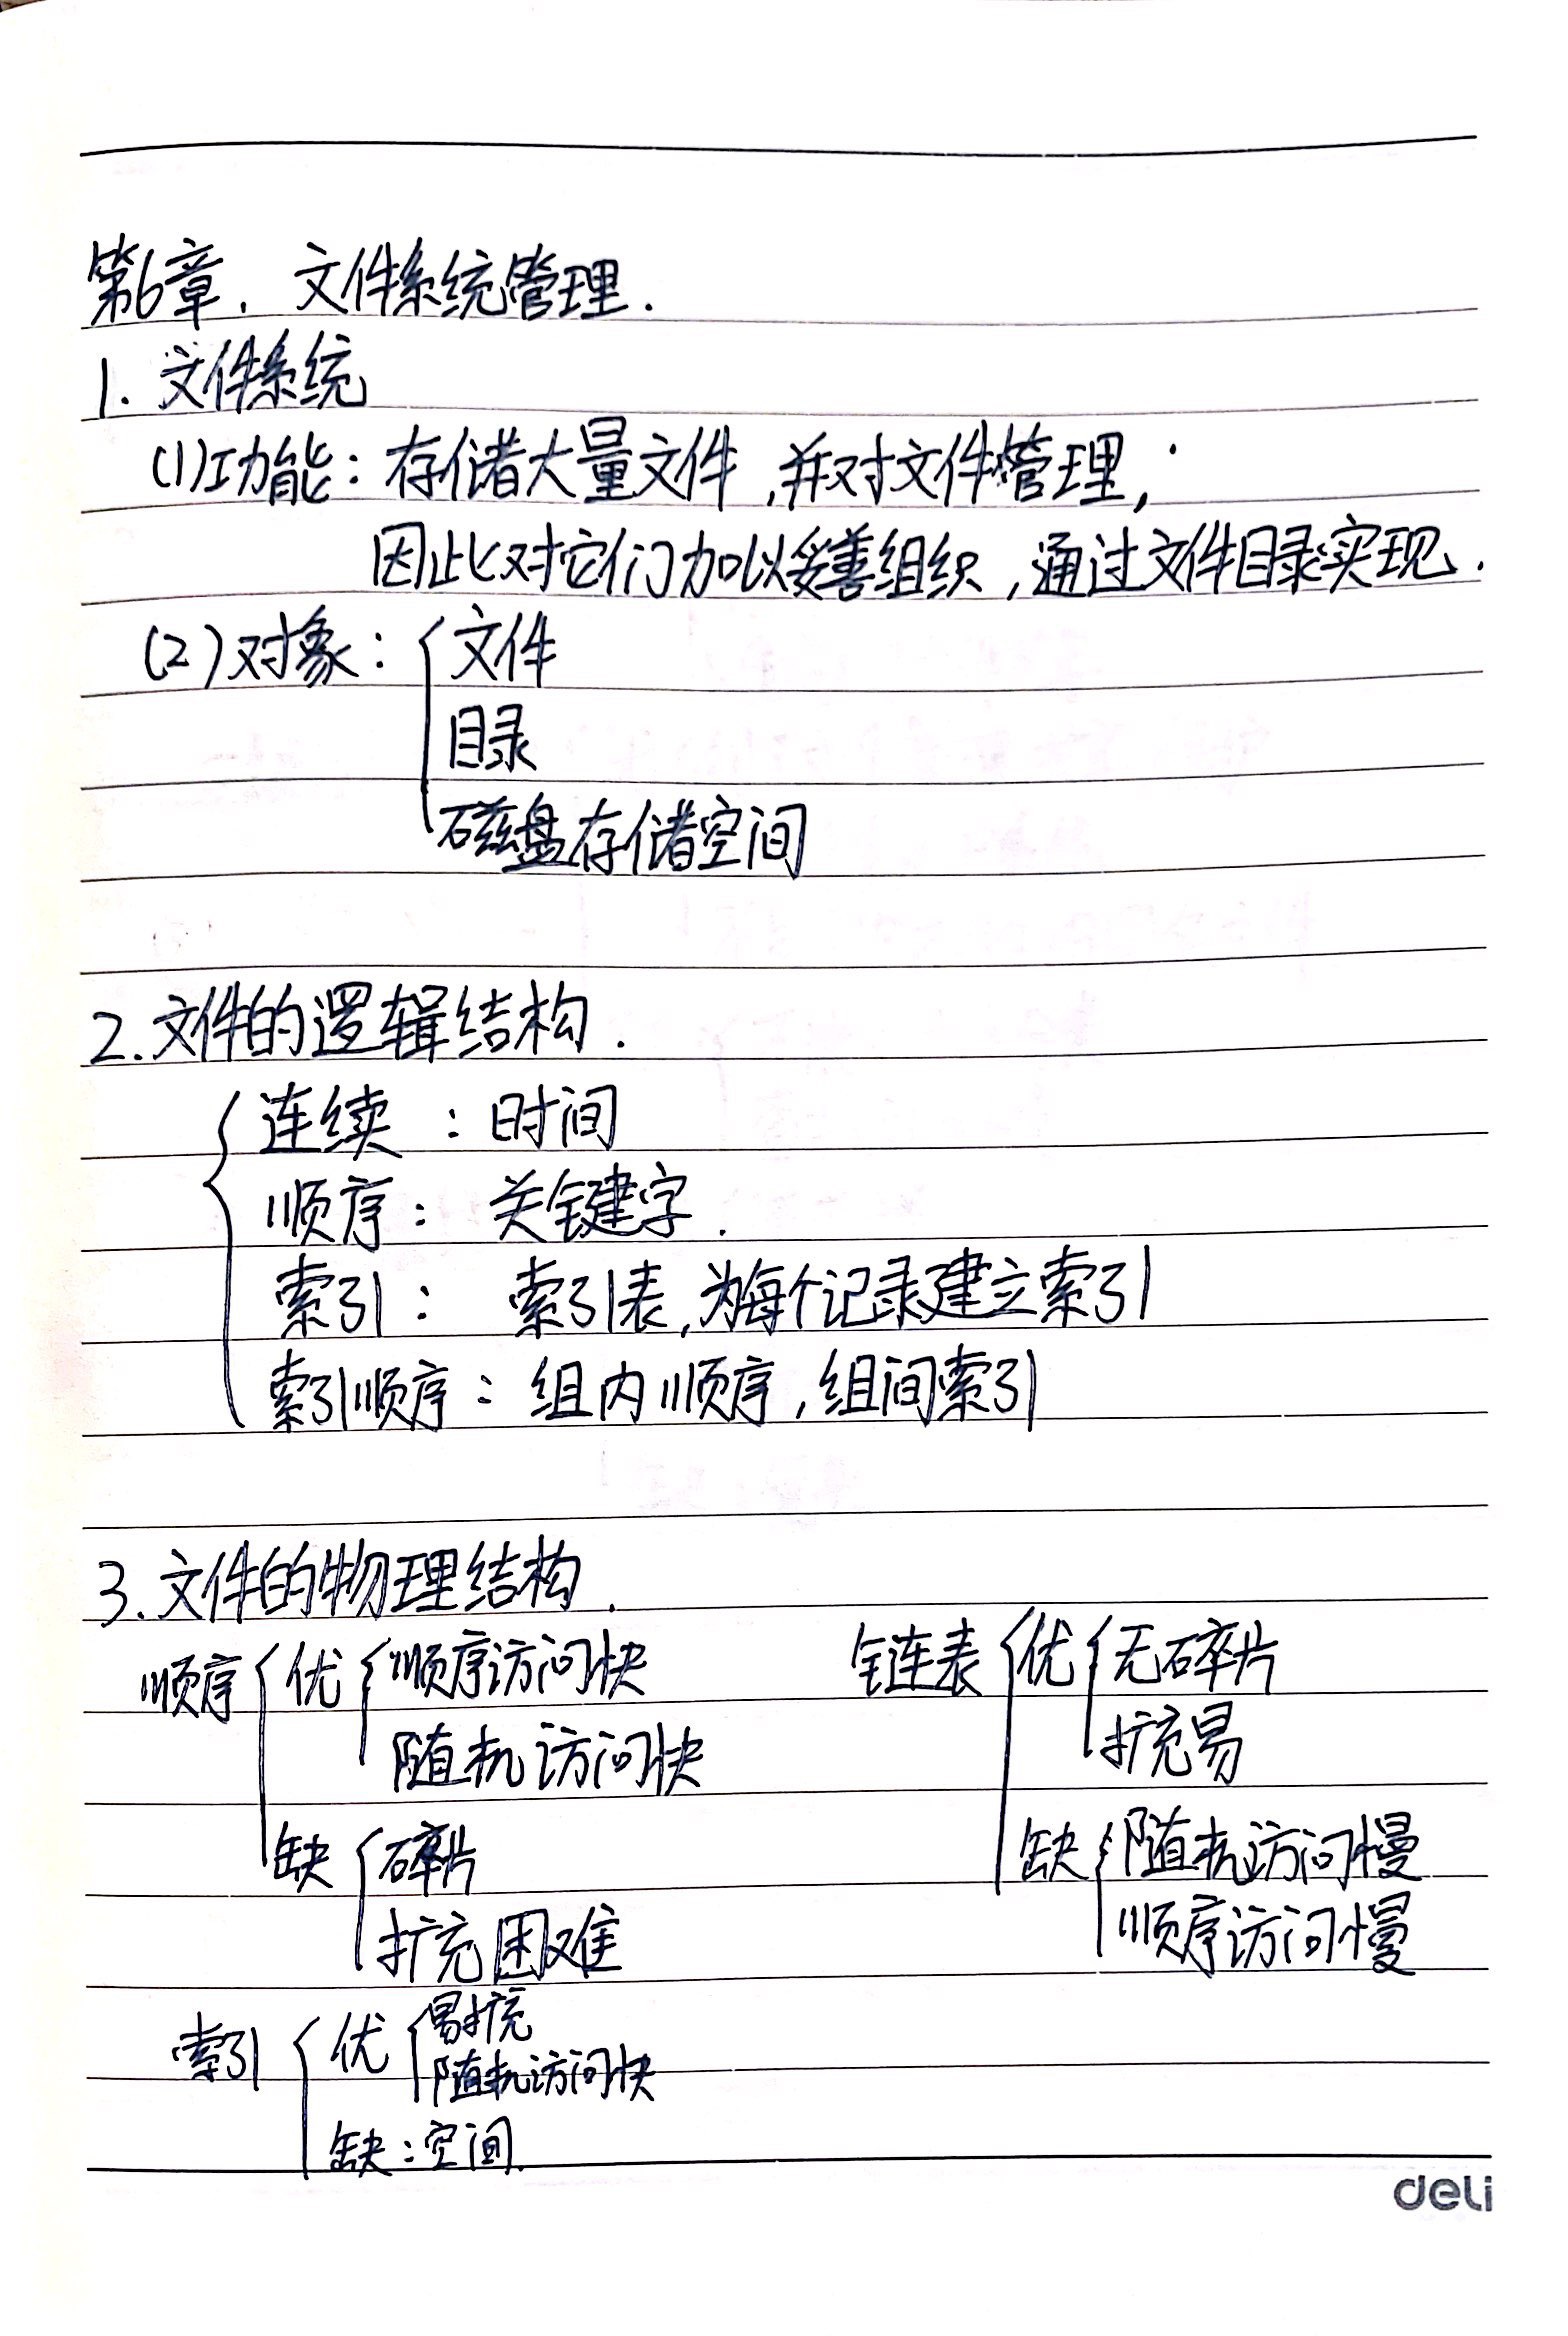 第6章. 文件系统管理.
1. 文件系统
(1)功能: 存储大量文件,并对文件管理,
因此对它们加以妥善组织,通过文件目录实现.
(2)对象: { 文件
目录
磁盘存储空间
2.文件的逻辑结构.
{ 连续 : 时间
顺序: 关键字.
索引: 索引表,为每个记录建立索引
索引顺序: 组内顺序,组间索引
3.文件的物理结构.
顺序 { 优 { 顺序访问快
随机访问快
缺 { 碎片
扩充困难
链表 { 优 { 无碎片
扩充易
缺 { 随机访问慢
顺序访问慢
索引 { 优 { 易扩充
随机访问快
缺:空间.
deli